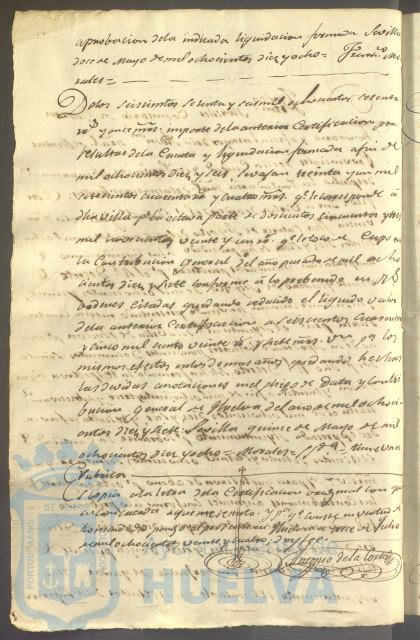 aprobacion dela indicada liquidacion formada Sevilla
doce de Mayo de mil ochocientos diez y ocho = Fran.co Mo
rales =
Delos seiscientos setenta y seis mil ochocientos sesenta
r.s y once mrs. importe dela anterior Certificacion por
resultas dela Cuenta y liquidacion formada a fin de
mil ochocientos diez y seis, se vajan treinta y un mil
setecientos cuarenta y cuatro mrs. q.e le corresponde á
dha villa p.r la octava parte de doscientos cincuenta y tres
mil novecientos veinte y un r.s q.e le toco de Cupo en
la Contribucion General del año pasado de mil ocho
cientos diez y siete conforme a lo prebenido en R.s
ordenes citadas quedando reducido el liquido valor
dela anterior Certificacion a seiscientos cuarenta
y cinco mil ciento veinte r.s y siete mrs. v.n p.a los
mismos efectos
quedando hechas
las devidas anotaciones en el pliego de Data y Contri
bucion General de Huelva del año de mil ochoci
entos diez y siete. Sevilla quince de Mayo de mil
ochocientos diez y ocho = Morales = tiene una
rubrica
Es copia ala letra dela Certificacion original con q.e
y p.a q.e conste en virtud de
lo mandado pongo el presente en Huelva a once de Julio
de mil ochocientos veinte y cuatro doy fee
Antonio dela Corte
PORTUS MARIS
HUELVA